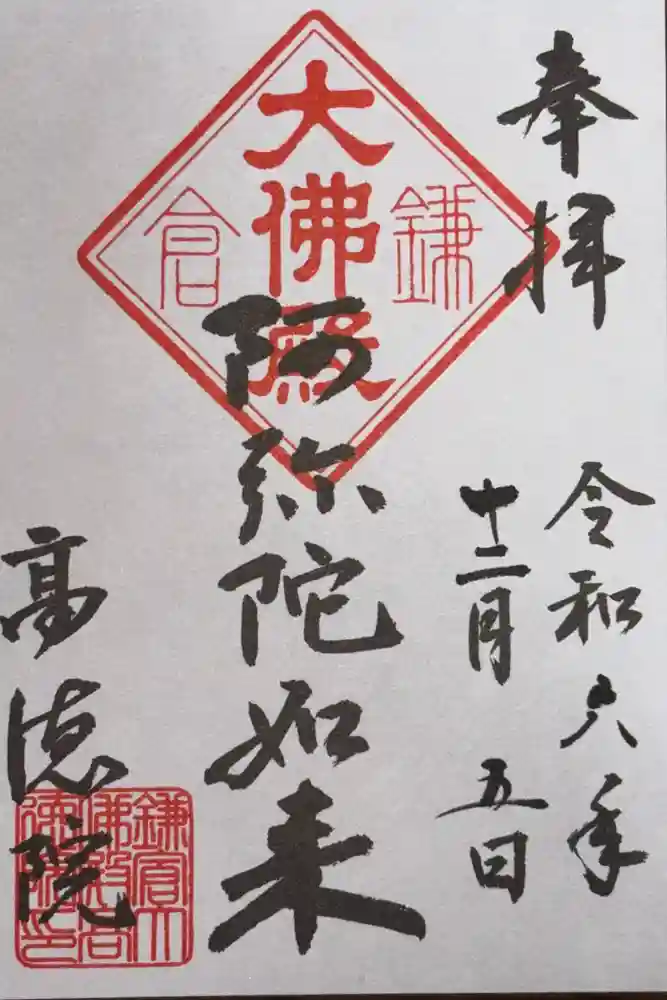 奉拝
令和六年
十二月五日
鎌倉
大佛殿
阿弥陀如来
高徳院
鎌倉大
佛殿高
徳院印